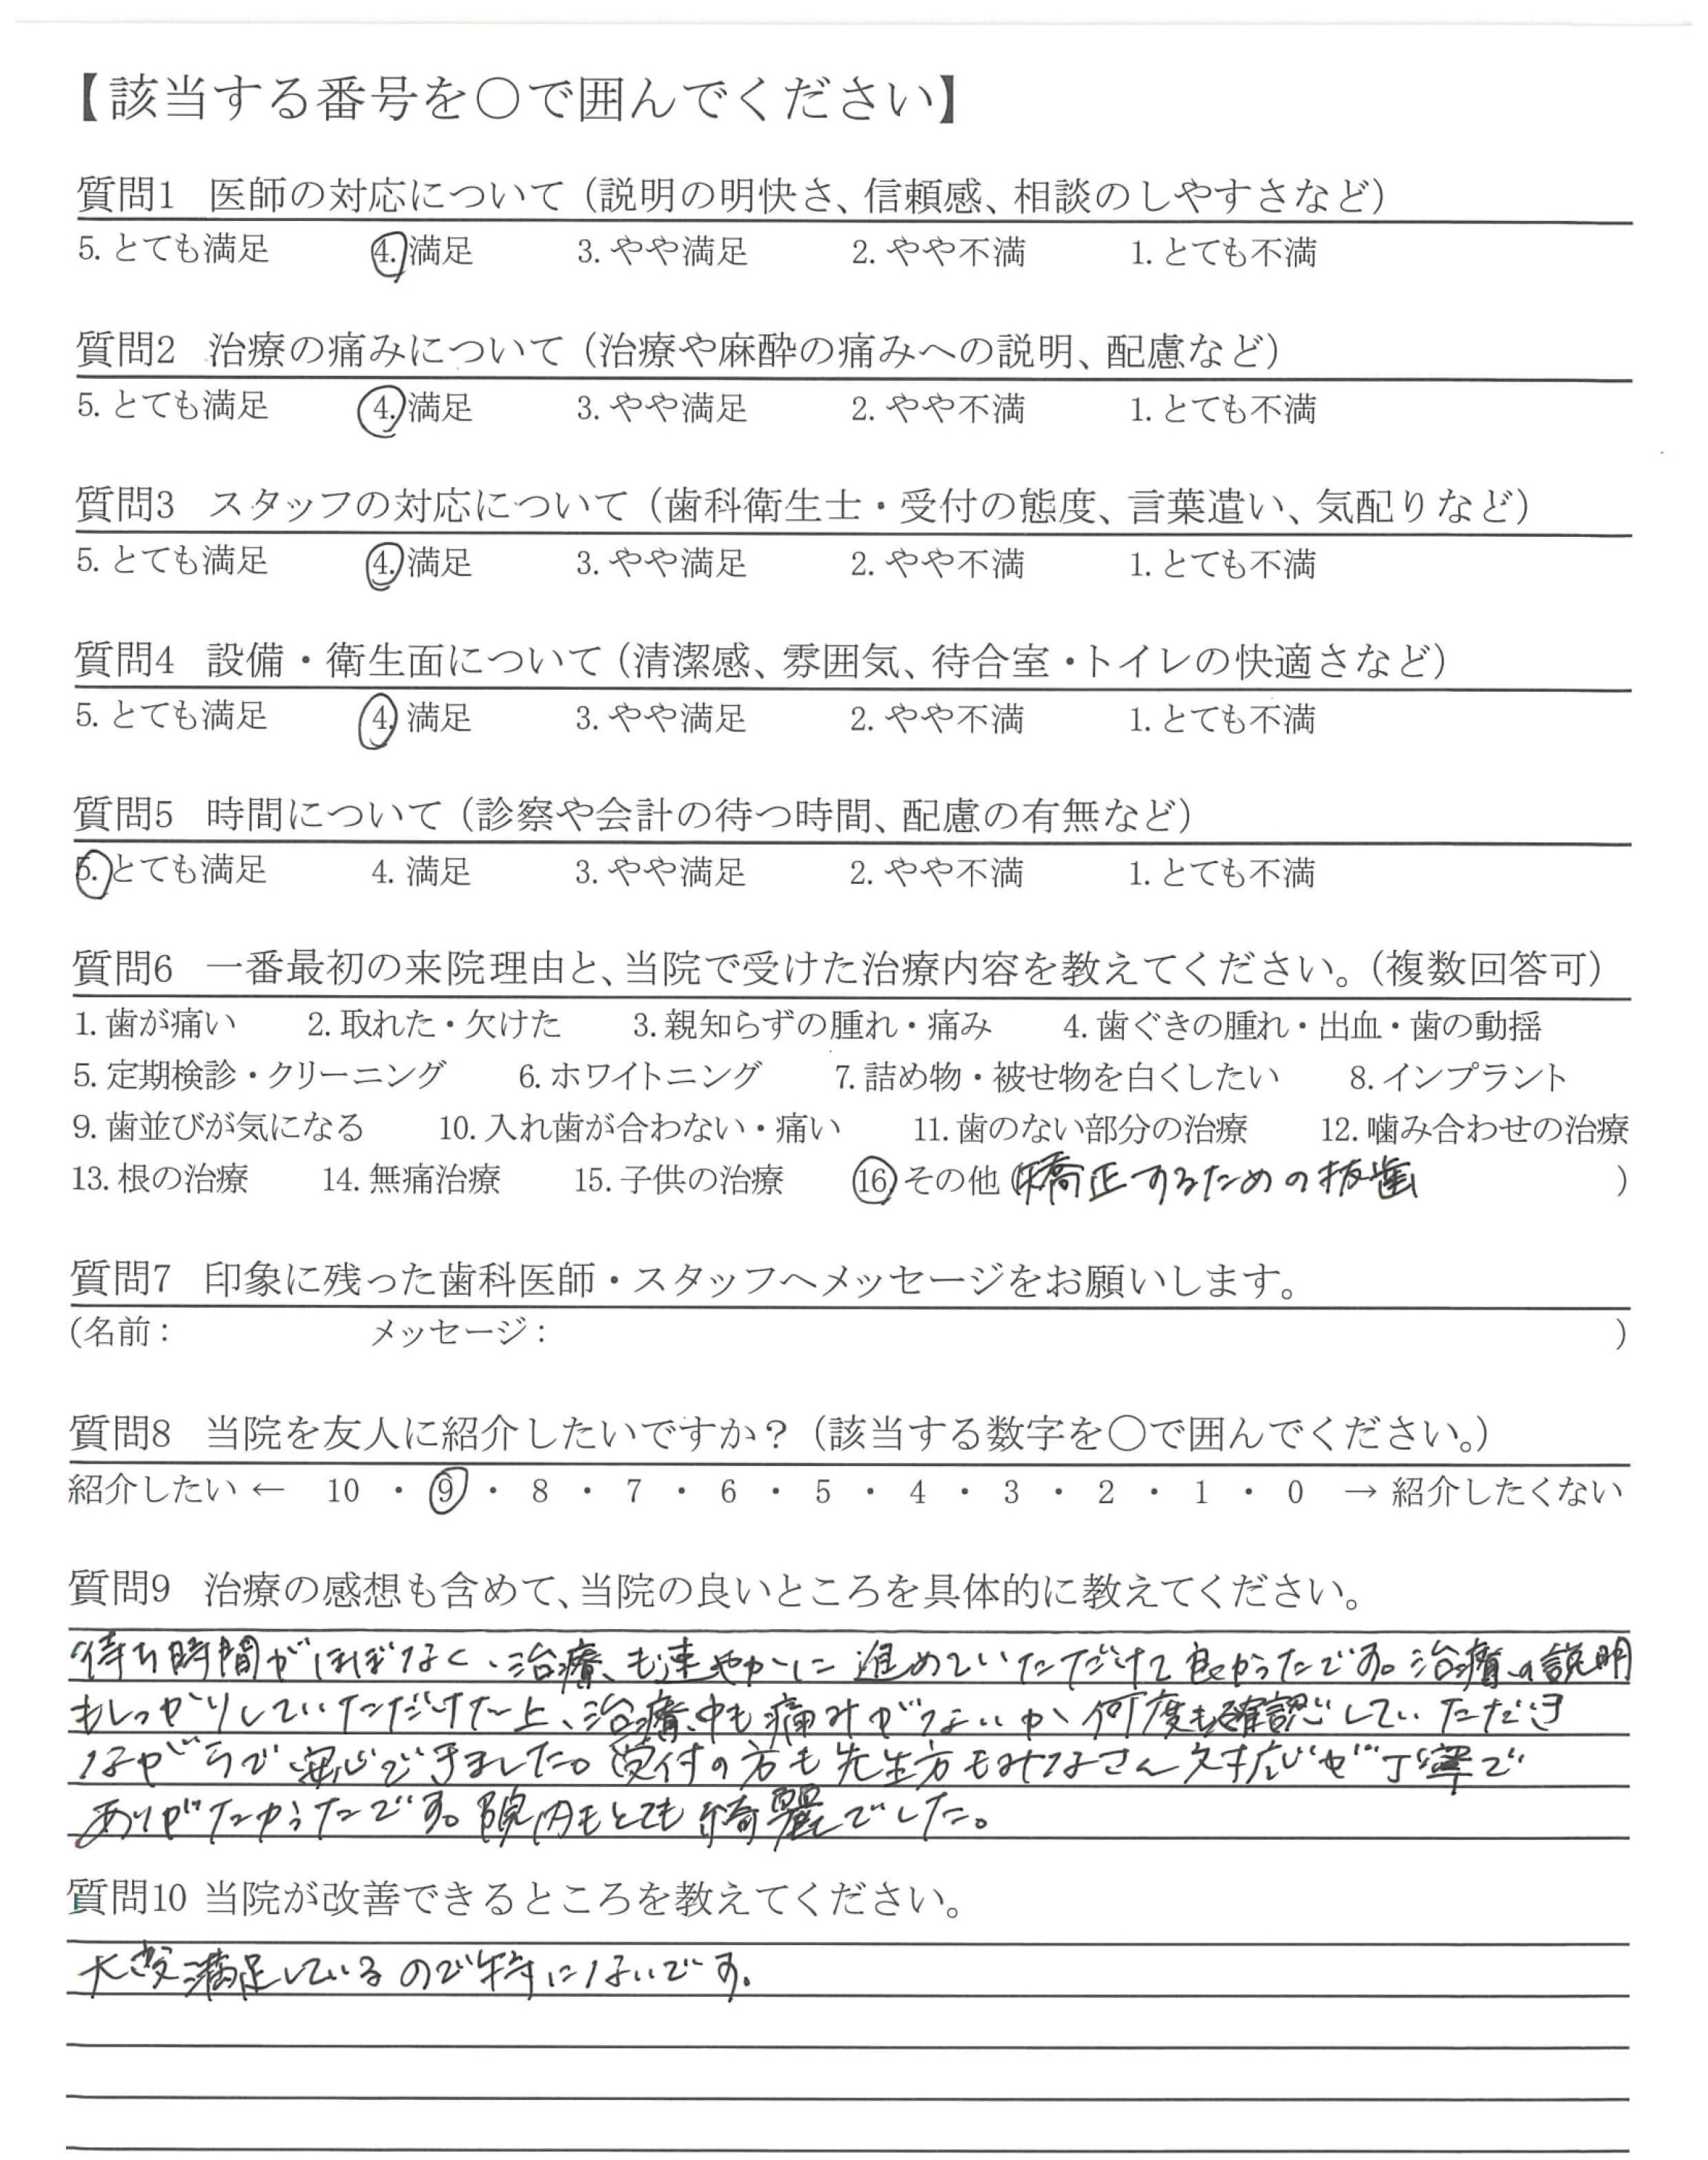 【該当する番号を〇で囲んでください】
質問1 医師の対応について（説明の明快さ、信頼感、相談のしやすさなど）
5. とても満足 4. 満足 3. やや満足 2. やや不満 1. とても不満
質問2 治療の痛みについて（治療や麻酔の痛みへの説明、配慮など）
5. とても満足 4. 満足 3. やや満足 2. やや不満 1. とても不満
質問3 スタッフの対応について（歯科衛生士・受付の態度、言葉遣い、気配りなど）
5. とても満足 4. 満足 3. やや満足 2. やや不満 1. とても不満
質問4 設備・衛生面について（清潔感、雰囲気、待合室・トイレの快適さなど）
5. とても満足 4. 満足 3. やや満足 2. やや不満 1. とても不満
質問5 時間について（診察や会計の待つ時間、配慮の有無など）
5. とても満足 4. 満足 3. やや満足 2. やや不満 1. とても不満
質問6 一番最初の来院理由と、当院で受けた治療内容を教えてください。（複数回答可）
1. 歯が痛い 2. 取れた・欠けた 3. 親知らずの腫れ・痛み 4. 歯ぐきの腫れ・出血・歯の動揺
5. 定期検診・クリーニング 6. ホワイトニング 7. 詰め物・被せ物を白くしたい 8. インプラント
9. 歯並びが気になる 10. 入れ歯が合わない・痛い 11. 歯のない部分の治療 12. 噛み合わせの治療
13. 根の治療 14. 無痛治療 15. 子供の治療 16. その他（矯正するための抜歯）
質問7 印象に残った歯科医師・スタッフへメッセージをお願いします。
（名前： メッセージ： ）
質問8 当院を友人に紹介したいですか？（該当する数字を〇で囲んでください。）
紹介したい ← 10 ・ 9 ・ 8 ・ 7 ・ 6 ・ 5 ・ 4 ・ 3 ・ 2 ・ 1 ・ 0 → 紹介したくない
質問9 治療の感想も含めて、当院の良いところを具体的に教えてください。
待ち時間がほぼなく、治療も速やかに進めていただけて良かったです。治療の説明
もしっかりしていただけた上、治療中も痛みがないか何度も確認していただき
ながらで安心できました。受付の方も先生方もみなさん対応が丁寧で
ありがたかったです。院内もとても綺麗でした。
質問10 当院が改善できるところを教えてください。
大変満足しているので特にないです。